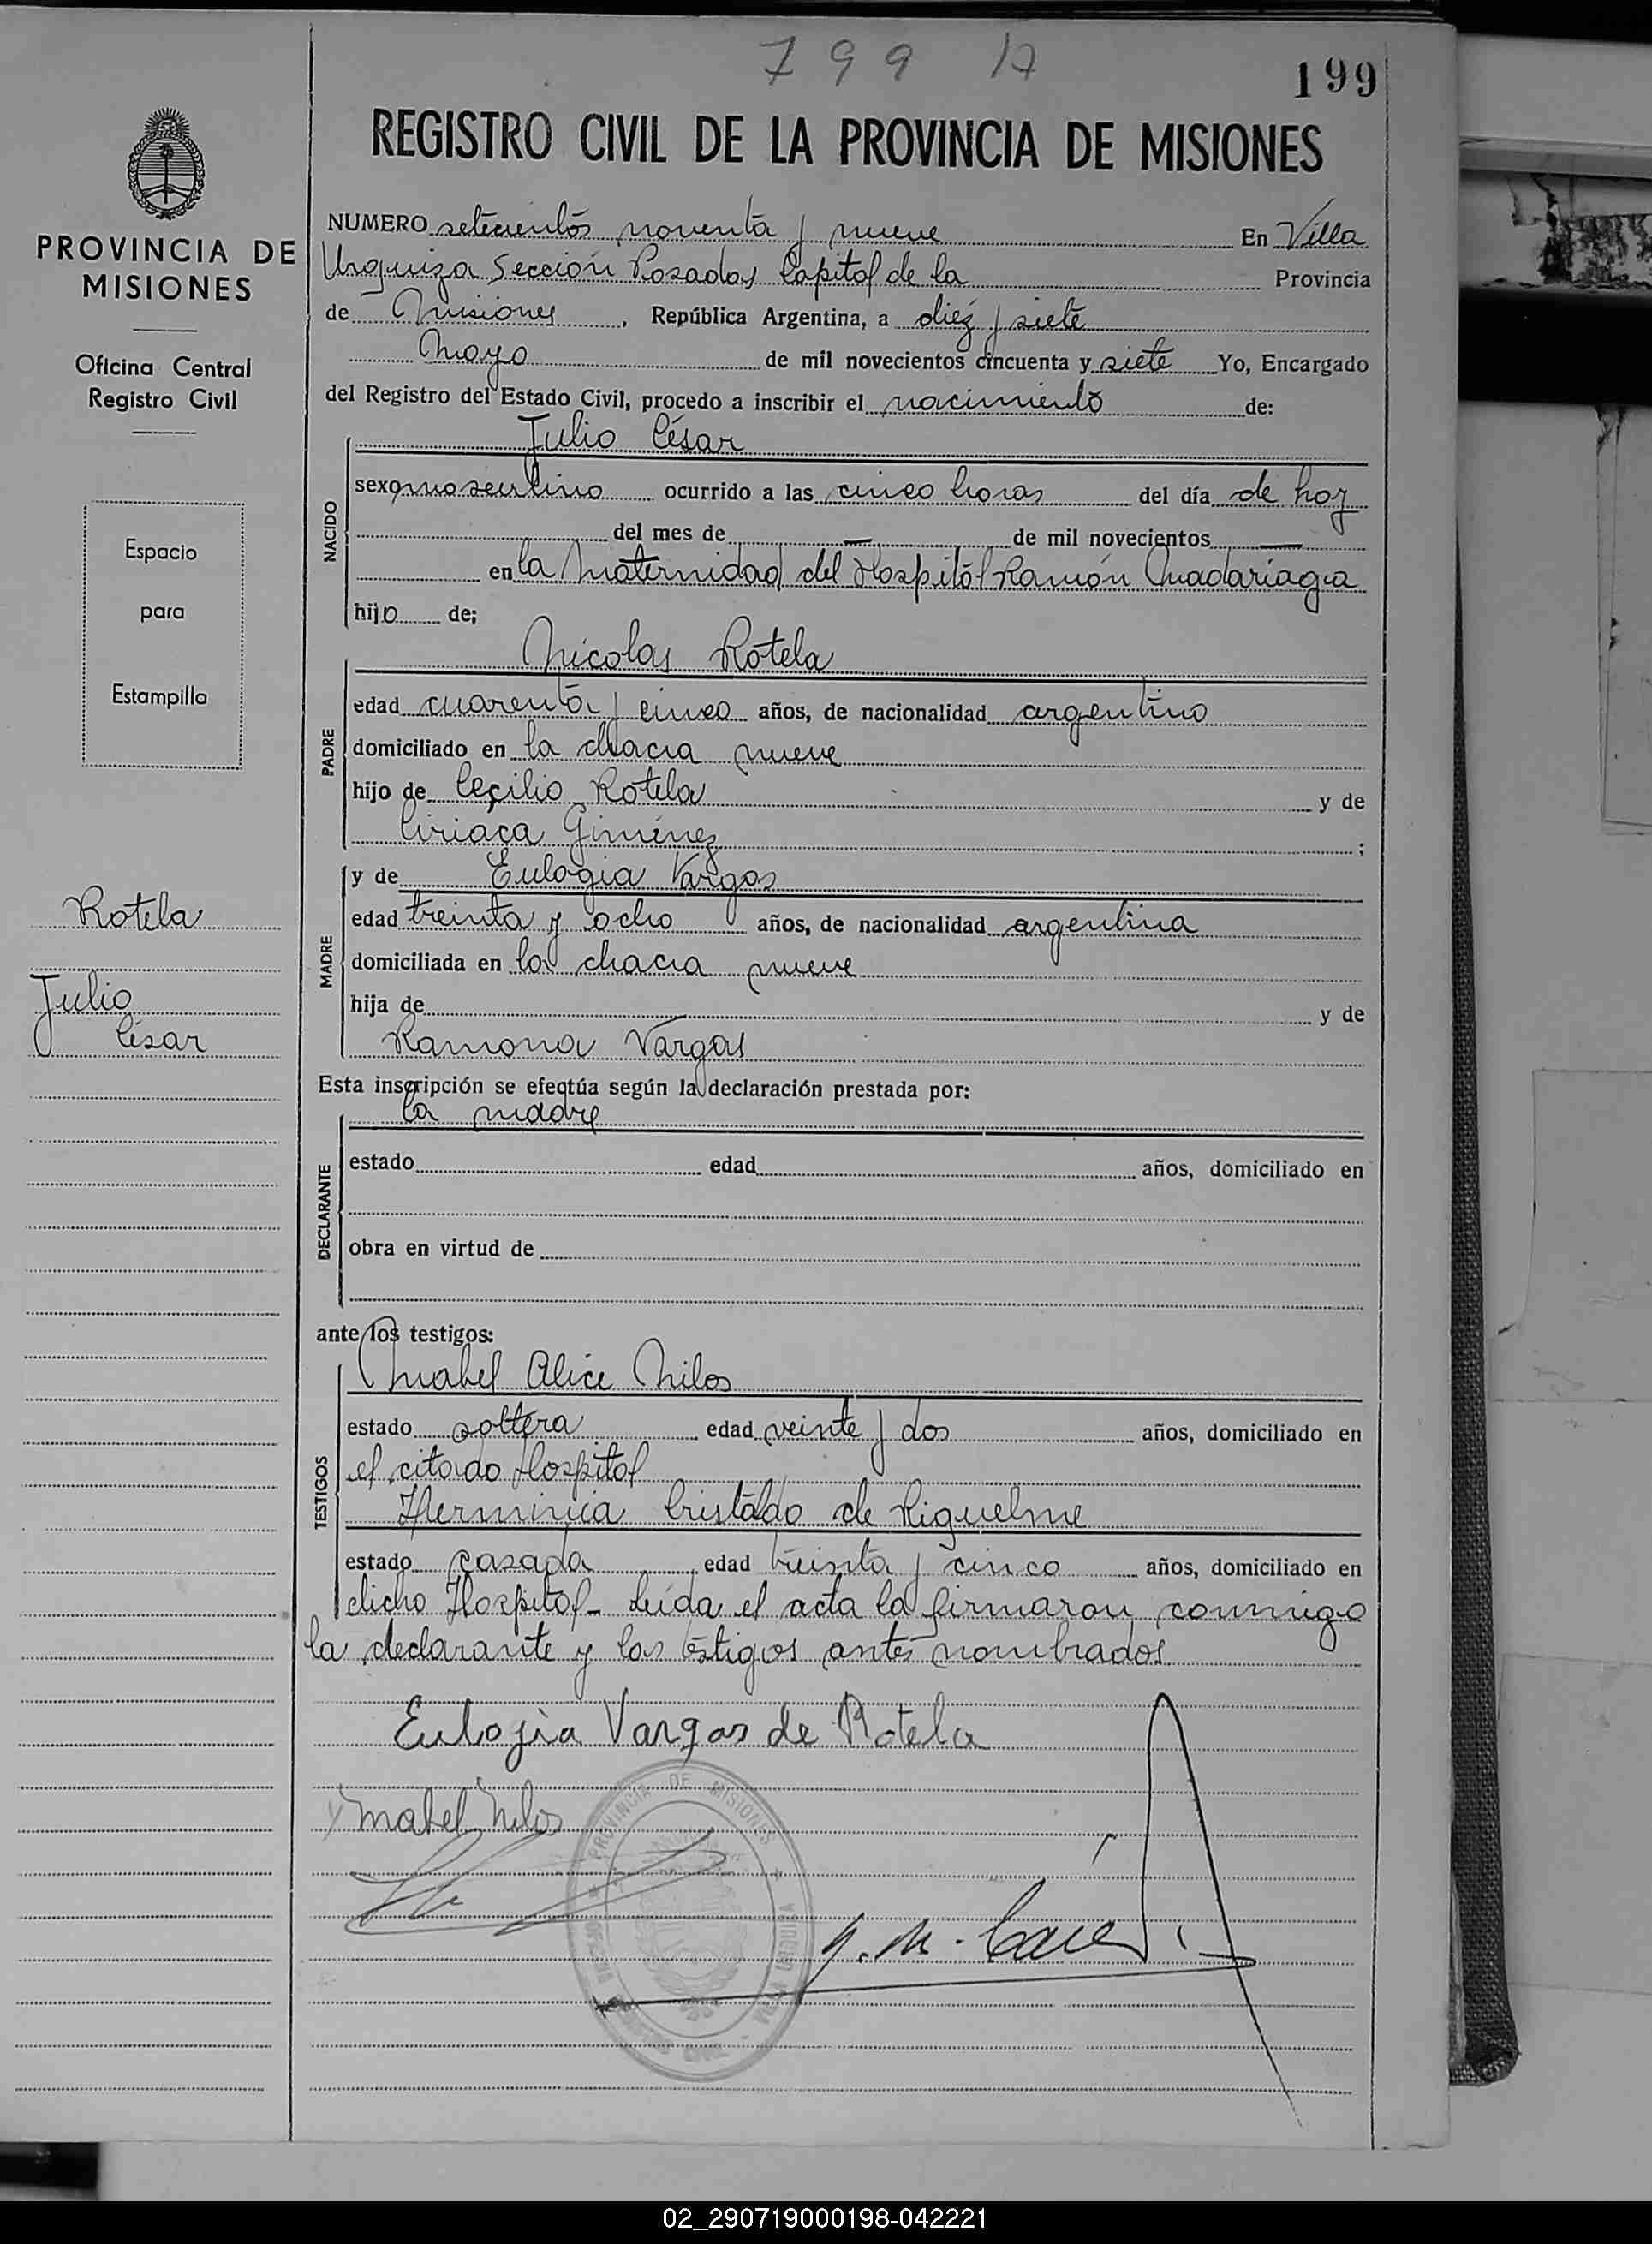 799 A
199
REGISTRO CIVIL DE LA PROVINCIA DE MISIONES
PROVINCIA DE
MISIONES
Oficina Central
Registro Civil
Espacio
para
Estampilla
Rotela
Julio
César
NUMERO setecientos noventa y nueve En Villa
Urquiza Sección Posadas Capital de la Provincia
de Misiones, República Argentina, a diez y siete
Mayo de mil novecientos cincuenta y siete Yo, Encargado
del Registro del Estado Civil, procedo a inscribir el nacimiento de:
NACIDO
Julio César
sexo masculino ocurrido a las cinco horas del día de hoy
del mes de — de mil novecientos —
en la Maternidad del Hospital Ramón Madariaga
hijo de;
PADRE
Nicolas Rotela
edad cuarenta y cinco años, de nacionalidad argentino
domiciliado en la chacra nueve
hijo de Cecilio Rotela y de
Ciriaca Giménez ;
MADRE
y de Eulogia Vargas
edad treinta y ocho años, de nacionalidad argentina
domiciliada en la chacra nueve
hija de y de
Ramona Vargas
Esta inscripción se efectúa según la declaración prestada por:
DECLARANTE
la madre
estado edad años, domiciliado en
obra en virtud de
ante los testigos:
TESTIGOS
Mabel Alice Milos
estado soltera edad veinte y dos años, domiciliado en
el citado Hospital
Herminia Cristaldo de Riquelme
estado casada edad treinta y cinco años, domiciliado en
dicho Hospital- Leída el acta la firmaron conmigo
la declarante y los testigos antes nombrados
Eulogia Vargas de Rotela
Mabel Milos
PROVINCIA DE MISIONES
VILLA URQUIZA
02_290719000198-042221